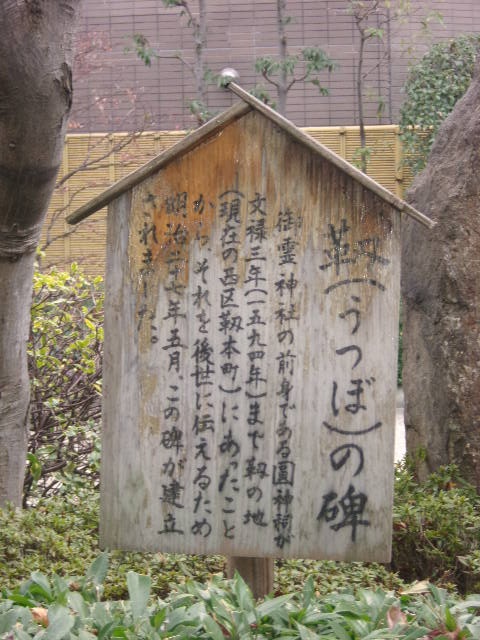 靱(うつぼ)の碑
御霊神社の前身である圓神祠が
文禄三年(一五九四年)まで靱の地
(現在の西区靱本町)にあったこと
からそれを後世に伝えるため
明治二十七年五月、この碑が建立
されました。